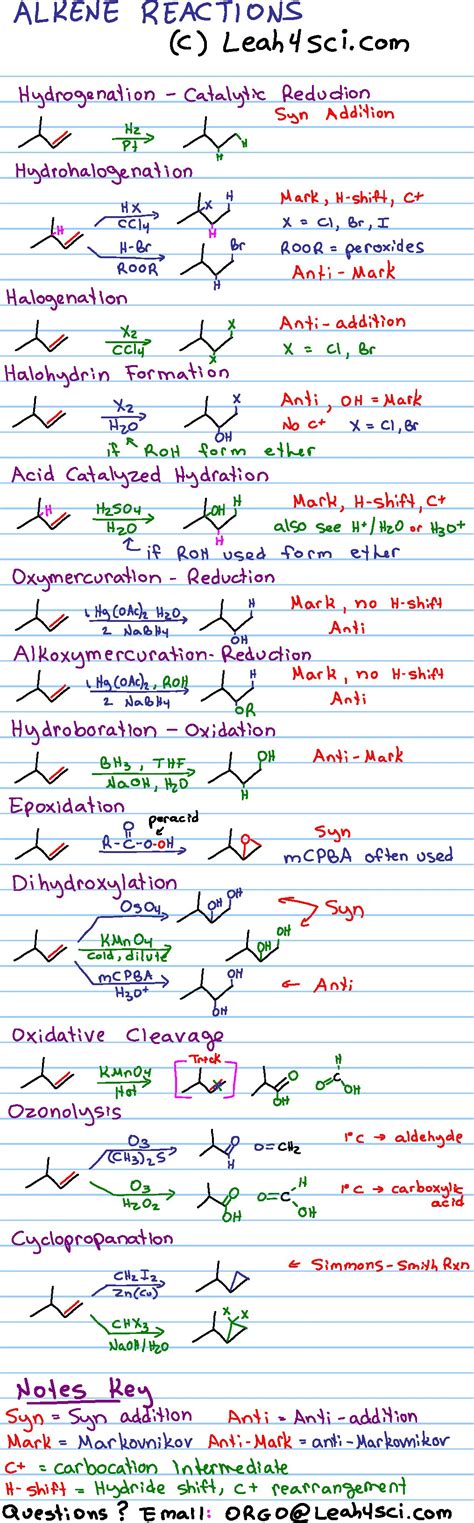 ALKENE REACTIONS
(c) Leah4sci.com
Hydrogenation - Catalytic Reduction
Syn Addition
H2
Pt
H
H
Hydrohalogenation
H
HX
CCl4
X
H
H
Mark, H-shift, C+
X = Cl, Br, I
H-Br
ROOR
Br
H
ROOR = peroxides
Anti-Mark
Halogenation
X2
CCl4
X
X
Anti-addition
X = Cl, Br
Halohydrin Formation
X2
H2O
X
OH
Anti, OH = Mark
No C+ X = Cl, Br
if ROH form ether
Acid Catalyzed Hydration
H
H2SO4
H2O
OH
H
H
Mark, H-shift, C+
also see H+/H2O or H3O+
if ROH used form ether
Oxymercuration - Reduction
1 Hg(OAc)2 H2O
2 NaBH4
H
OH
Mark, no H-shift
Anti
Alkoxymercuration-Reduction
1 Hg(OAc)2, ROH
2 NaBH4
H
OR
Mark, no H-shift
Anti
Hydroboration - Oxidation
BH3, THF
NaOH, H2O
OH
H
Anti-Mark
Epoxidation
peracid
O
R-C-O-OH
O
Syn
mCPBA often used
Dihydroxylation
OsO4
OH
OH
Syn
KMnO4
cold, dilute
OH
OH
mCPBA
H3O+
OH
OH
← Anti
Oxidative Cleavage
KMnO4
Hot
Trick
O
OH
H
O=C
OH
Ozonolysis
O3
(CH3)2S
O
H
O=CH2
1°C → aldehyde
O3
H2O2
O
OH
O=C
H
OH
1°C → carboxylic
acid
Cyclopropanation
CH2I2
Zn(Cu)
← Simmons-Smith Rxn
CHX3
NaOH/H2O
X
X
Notes Key
Syn = Syn addition Anti = Anti-addition
Mark = Markovnikov Anti-Mark = anti-Markovnikov
C+ = carbocation Intermediate
H-shift = Hydride shift, C+ rearrangement
Questions? Email: ORGO@Leah4sci.com